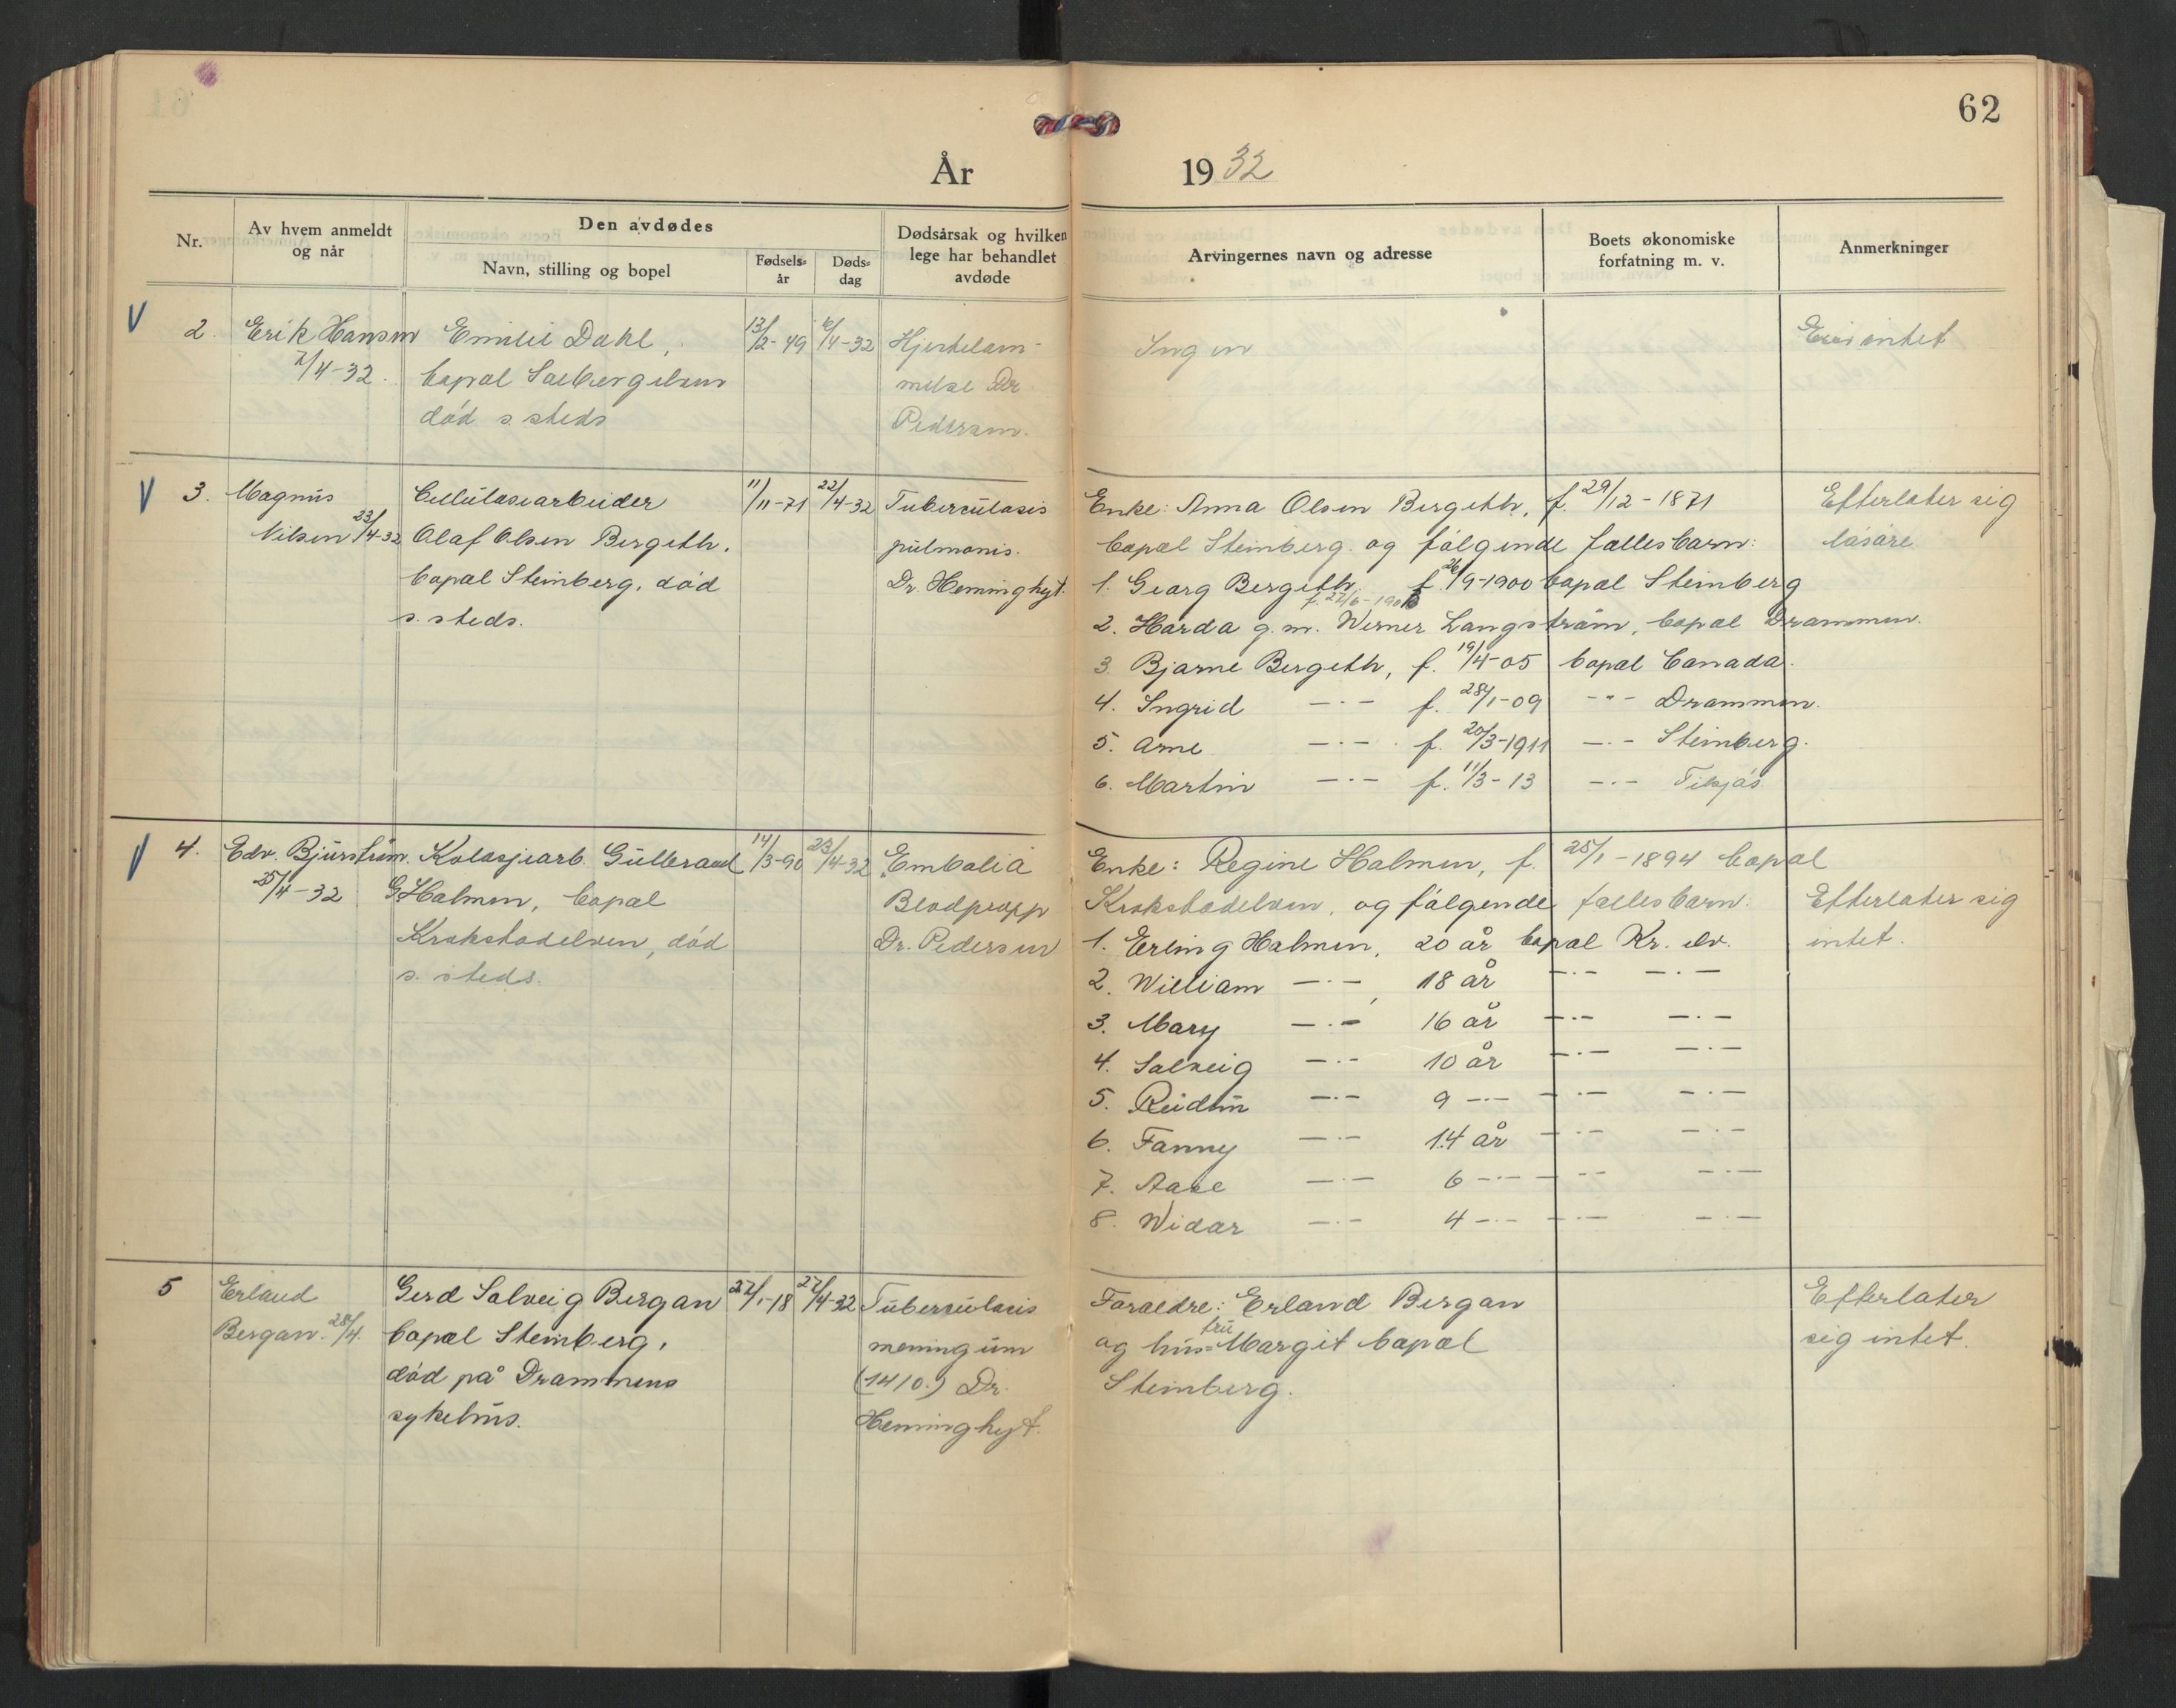 62
År 1932
Nr.
Av hvem anmeldt
og når
Den avdødes
Navn, stilling og bopel
Fødsels-
år
Døds-
dag
Dødsårsak og hvilken
lege har behandlet
avdøde
Arvingernes navn og adresse
Boets økonomiske
forfatning m. v.
Anmerkninger
V 2. Erik Hansen
7/4-32.
Emilie Dahl,
bopæl Solbergelven
død s. steds
13/2-49
6/4-32
Hjertelam-
melse Dr
Pedersen.
Ingen
Eier intet
V 3. Magnus
Nilsen 23/4-32
Cellulosearbeider
Olaf Olsen Bergeth.
bopæl Steinberg, død
s. steds.
11/11-71
22/4-32
Tuberculosis
pulmonis.
Dr. Heminghyt.
Enke: Anna Olsen Bergeth, f. 29/12-1871
bopæl Steinberg. og følgende fælles barn:
1. Georg Bergeth, f. 26/9-1900 bopæl Steinberg
2. Harda g.m. Werner Langstrøm, bopæl Drammen.
3. Bjarne Bergeth, f. 19/4-05 bopæl Canada.
4. Ingrid —·— f. 28/1-09 —·— Drammen.
5. Arne —·— f. 20/3-1911 —·— Steinberg.
6. Martin —·— f. 11/3-13 —·—
Efterlater sig
løsøre
V 4. Edv. Bjurstrøm.
25/4-32
Kolosjearb. Gullerand
G. Holmen, bopæl
Krokstadelven, død
s. steds.
14/3-90
23/4-32
Embolia
Blodpropp
Dr. Pedersen
Enke: Regine Holmen, f. 25/1-1894 bopæl
Krokstadelven, og følgende fælles barn:
1. Erling Holmen, 20 år bopæl Kr. elv.
2. William —·—, 18 år —·— —·—
3. Mary —·— 16 år —·— —·—
4. Solveig —·— 10 år —·— —·—
5. Reidun —·— 9 —·— —·— —·—
6. Fanny —·— 14 år —·— —·—
7. Aase —·— 6 —·— —·— —·—
8. Widar —·— 4 —·— —·— —·—
Efterlater sig
intet.
5 Erland
Bergan. 28/4.
Gerd Solveig Bergan
bopæl Steinberg,
død på Drammens
sykehus.
22/1-18
27/4-32
Tuberculosis
meningium
(14/0.) Dr.
Heminghyt.
Foraeldre: Erland Bergan
og hustru Margit bopæl
Steinberg.
Efterlater
sig intet.